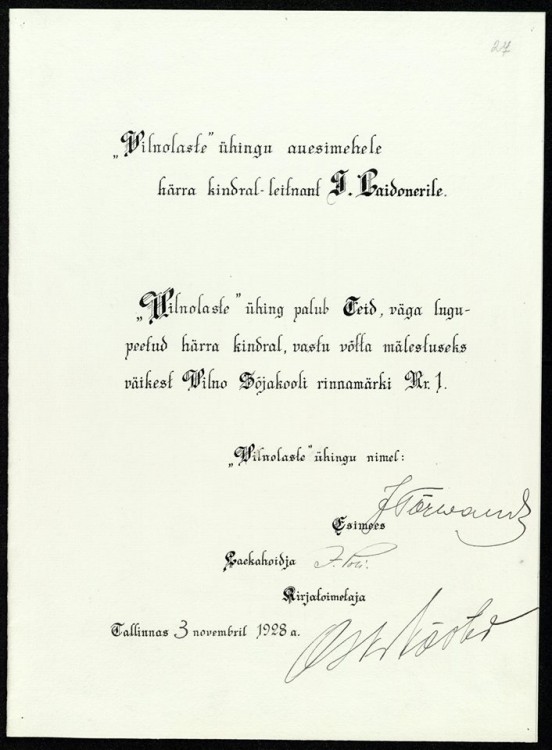 27
„Vilnolaste” ühingu auesimehele
härra kindral-leitnant J. Laidonerile.
„Vilnolaste” ühing palub Teid, väga lugu-
peetud härra kindral, vastu võtta mälestuseks
väikest Vilno Sõjakooli rinnamärki Nr. 1.
„Vilnolaste” ühingu nimel:
J Tõrwand
Esimees
Laekahoidja
Kirjatoimetaja
Tallinnas 3 novembril 1928 a.